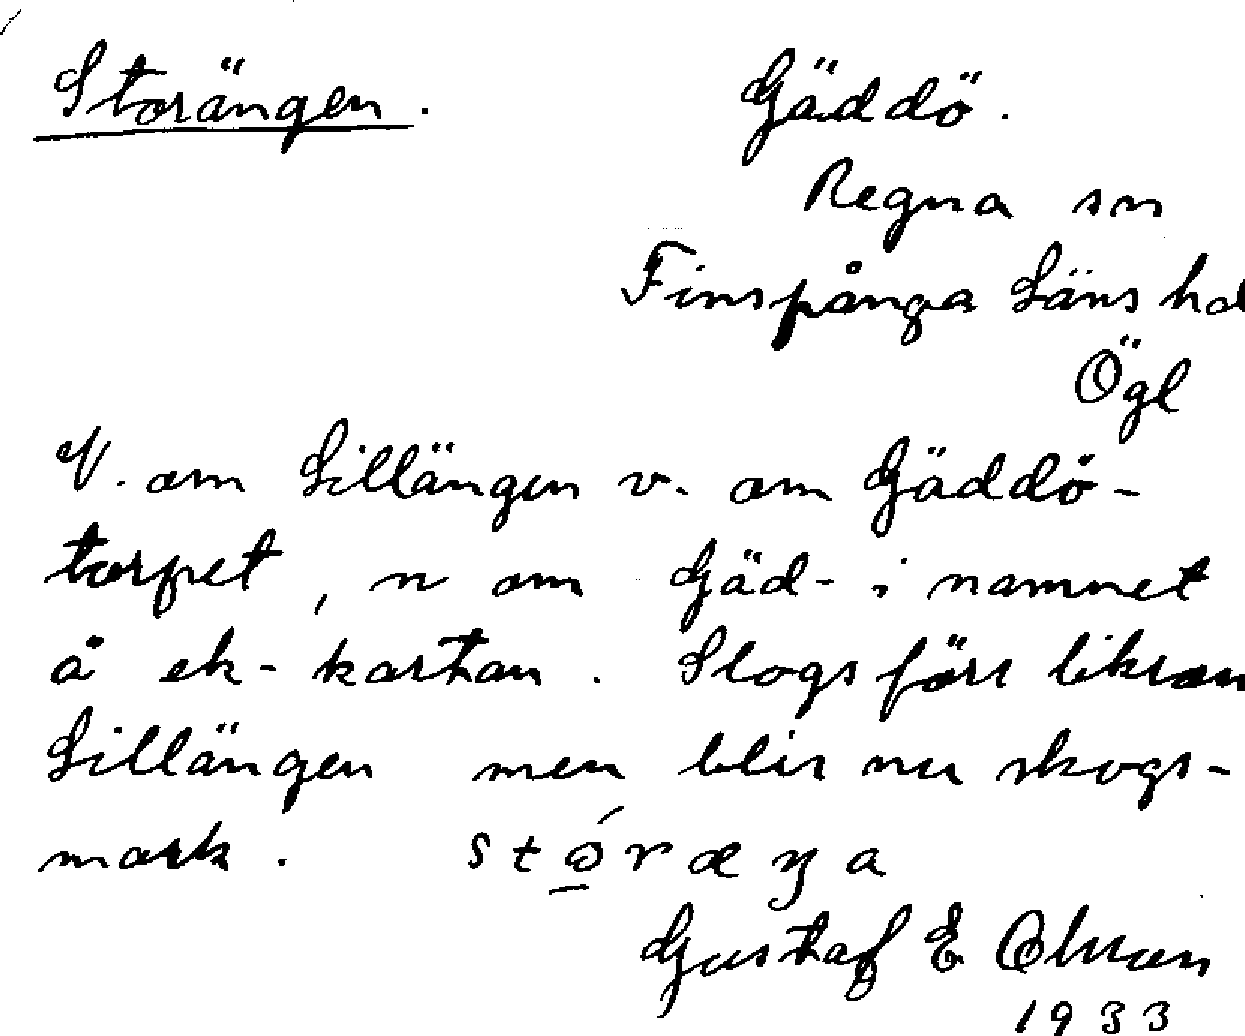 Storängen. Gäddö.
Regna sn
Finspånga Läns hd
Ögl
V. om Lillängen v. om Gäddö-
torpet, n om Gäd- i namnet
å ek-kartan. Slogs förr liksom
Lillängen men blir nu skogs-
mark. stǫ́ræŋa
Gustaf E Olsson
1933